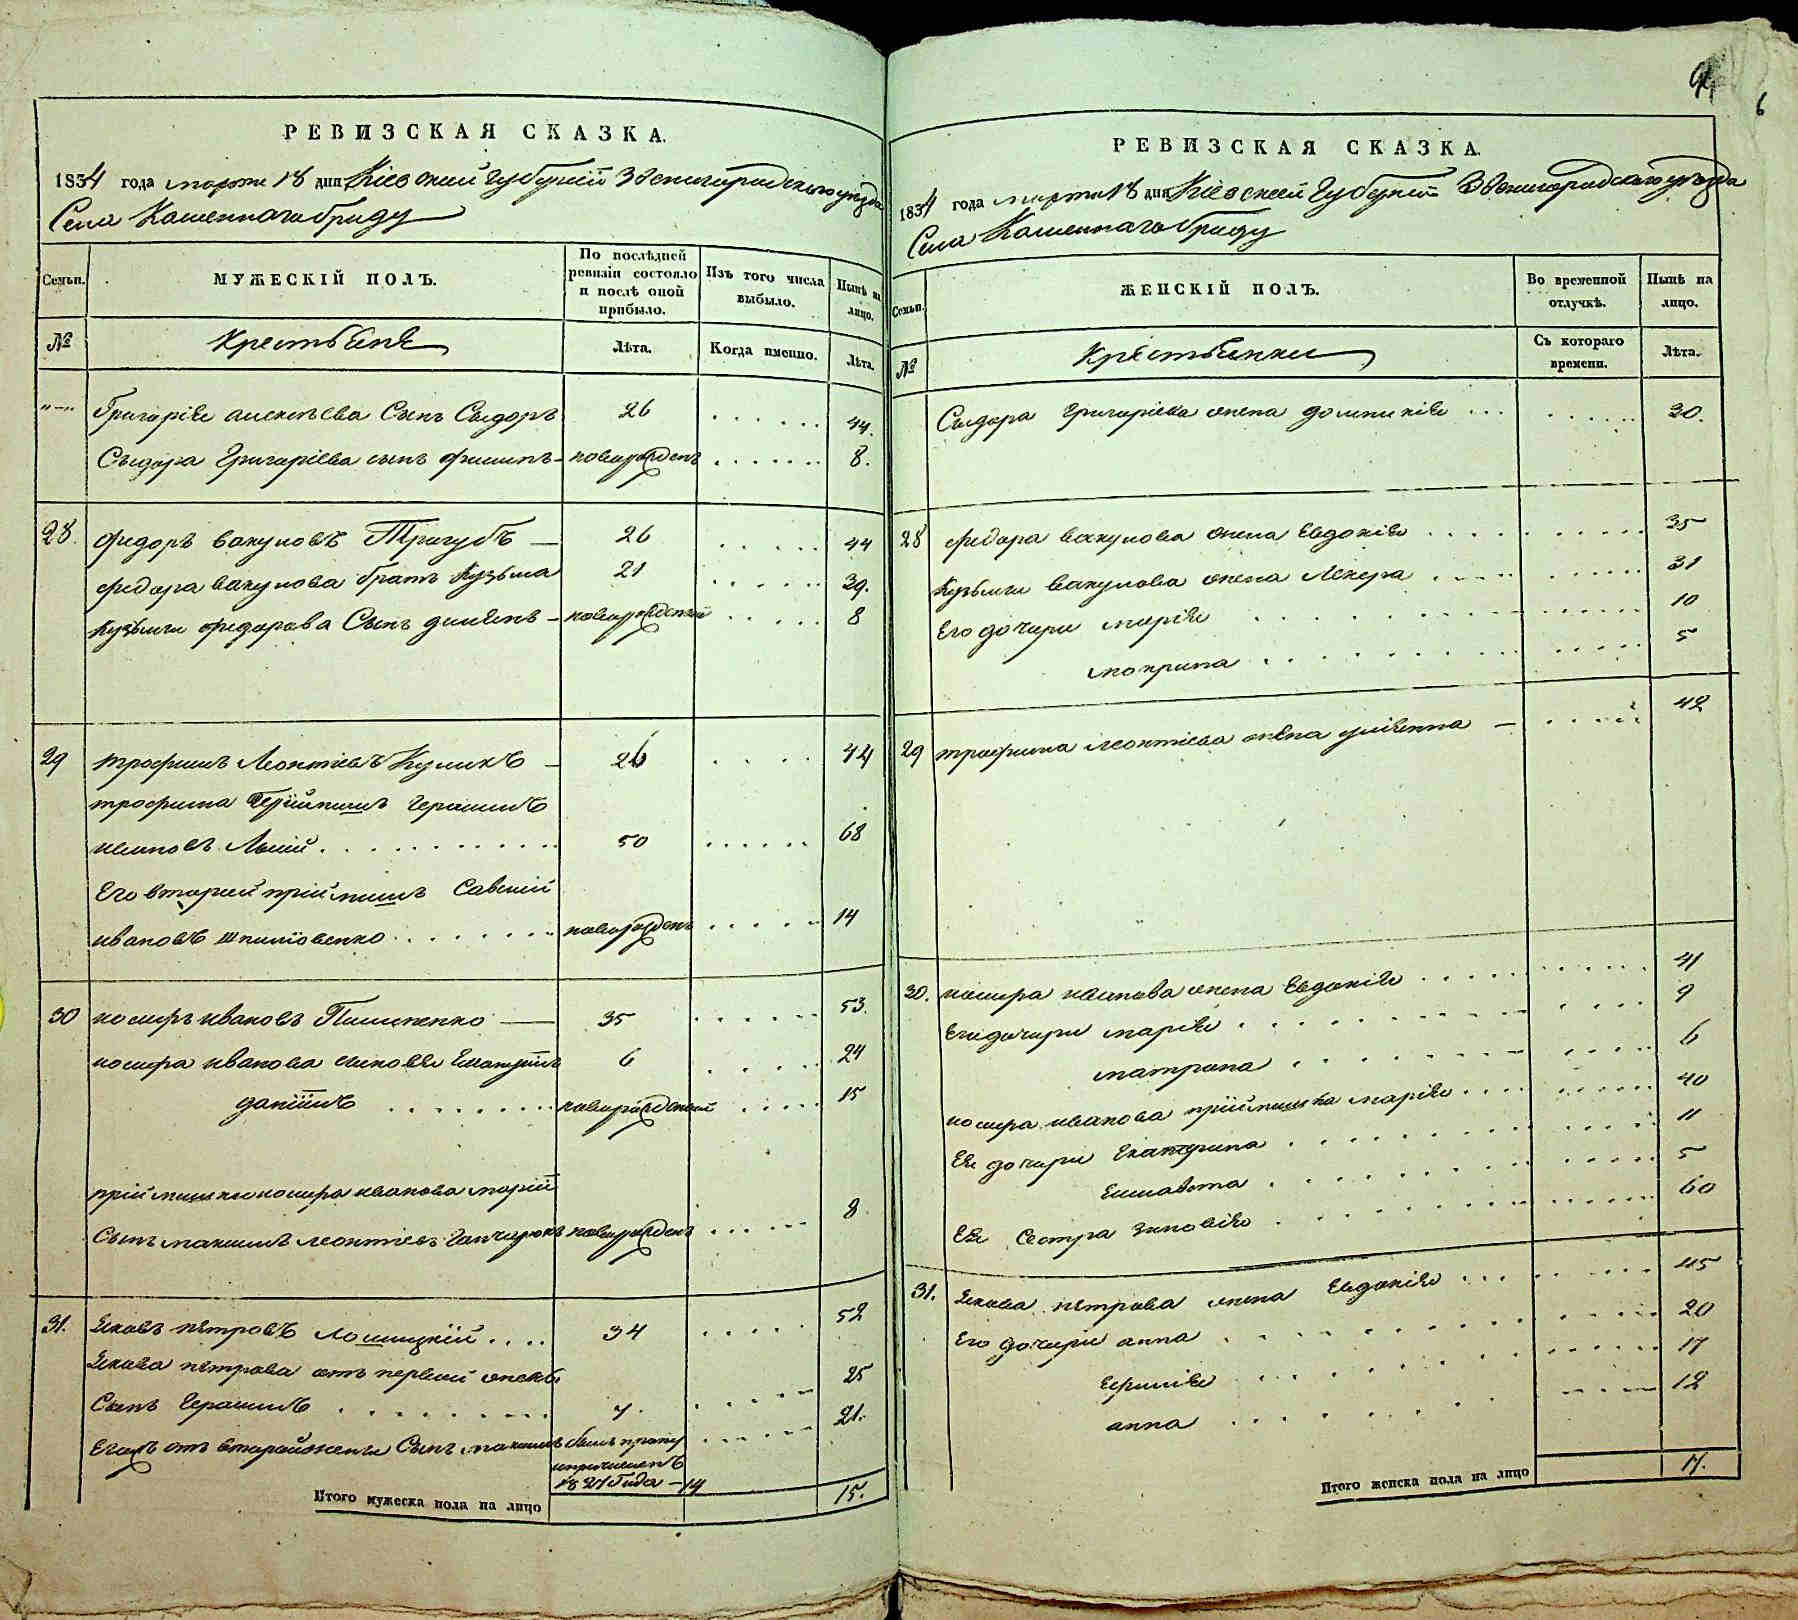 РЕВИЗСКАЯ СКАЗКА.
1834 года марта 18 дня Кіевской губерніи Звенигородского уѣзда
Села Каменнаго броду
Семьи.
МУЖЕСКІЙ ПОЛЪ.
По послѣдней ревизіи состояло и послѣ оной прибыло.
Изъ того числа выбыло.
Нынѣ на лицо.
№
Крестьяне
Лѣта.
Когда именно.
Лѣта.
"—" Григорія Алексѣева Сынъ Сыдоръ 26 44.
Сыдора Григоріева сынъ Филипъ новорожденъ 8.
28. Федоръ вакуловъ Тригубъ 26 44
Федора вакулова братъ Кузьма 21 39.
Кузьмы Федорова Сынъ Демянъ новорожденъ 8
29 Трофимъ Леонтіевъ Куликъ 26 44
трофима Герасимъ
ивановъ Лысый 50 68
Его вторый пріймышъ Савелій
ивановъ 14
30 иосифъ ивановъ 35 53.
иосифа иванова сыновья 6 24
даніилъ новорожденный 15
пріймышки иосифа иванова маріи
Сынъ максимъ леонтіевъ новорожденъ 8
31. Яковъ петровъ 34 52
Якова петрова отъ первой жены
Сынъ Герасимъ 7. 25
Его отъ второй жены Сынъ максимъ былъ 21.
1827 года — 14
Итого мужеска пола на лицо 15.
6
РЕВИЗСКАЯ СКАЗКА.
1834 года марта 18 дня Кіевской Губерніи Звенигородского уѣзда
Села Каменнаго броду
Семьи.
ЖЕНСКІЙ ПОЛЪ.
Во временной отлучкѣ.
Нынѣ на лицо.
№
Крестьянки
Съ котораго времени.
Лѣта.
Сыдора Григоріева жена домникія 30.
28 Федора вакулова жена Евдокія 35
Кузьмы вакулова жена 31
Его дочери марія 10
мокрина 5
29 трофима леонтіева жена уліянна 42
30. иосифа иванова жена Евдокія 41
Его дочери марія 9
матрона 6
иосифа иванова пріймышка марія 40
Ея дочери Екатерина 11
Елисавета 5
Ея Сестра зиновія 60
31. Якова петрова жена Евдокія 45
Его дочери анна 20
Ефимія 17
анна 12
Итого женска пола на лицо 17.